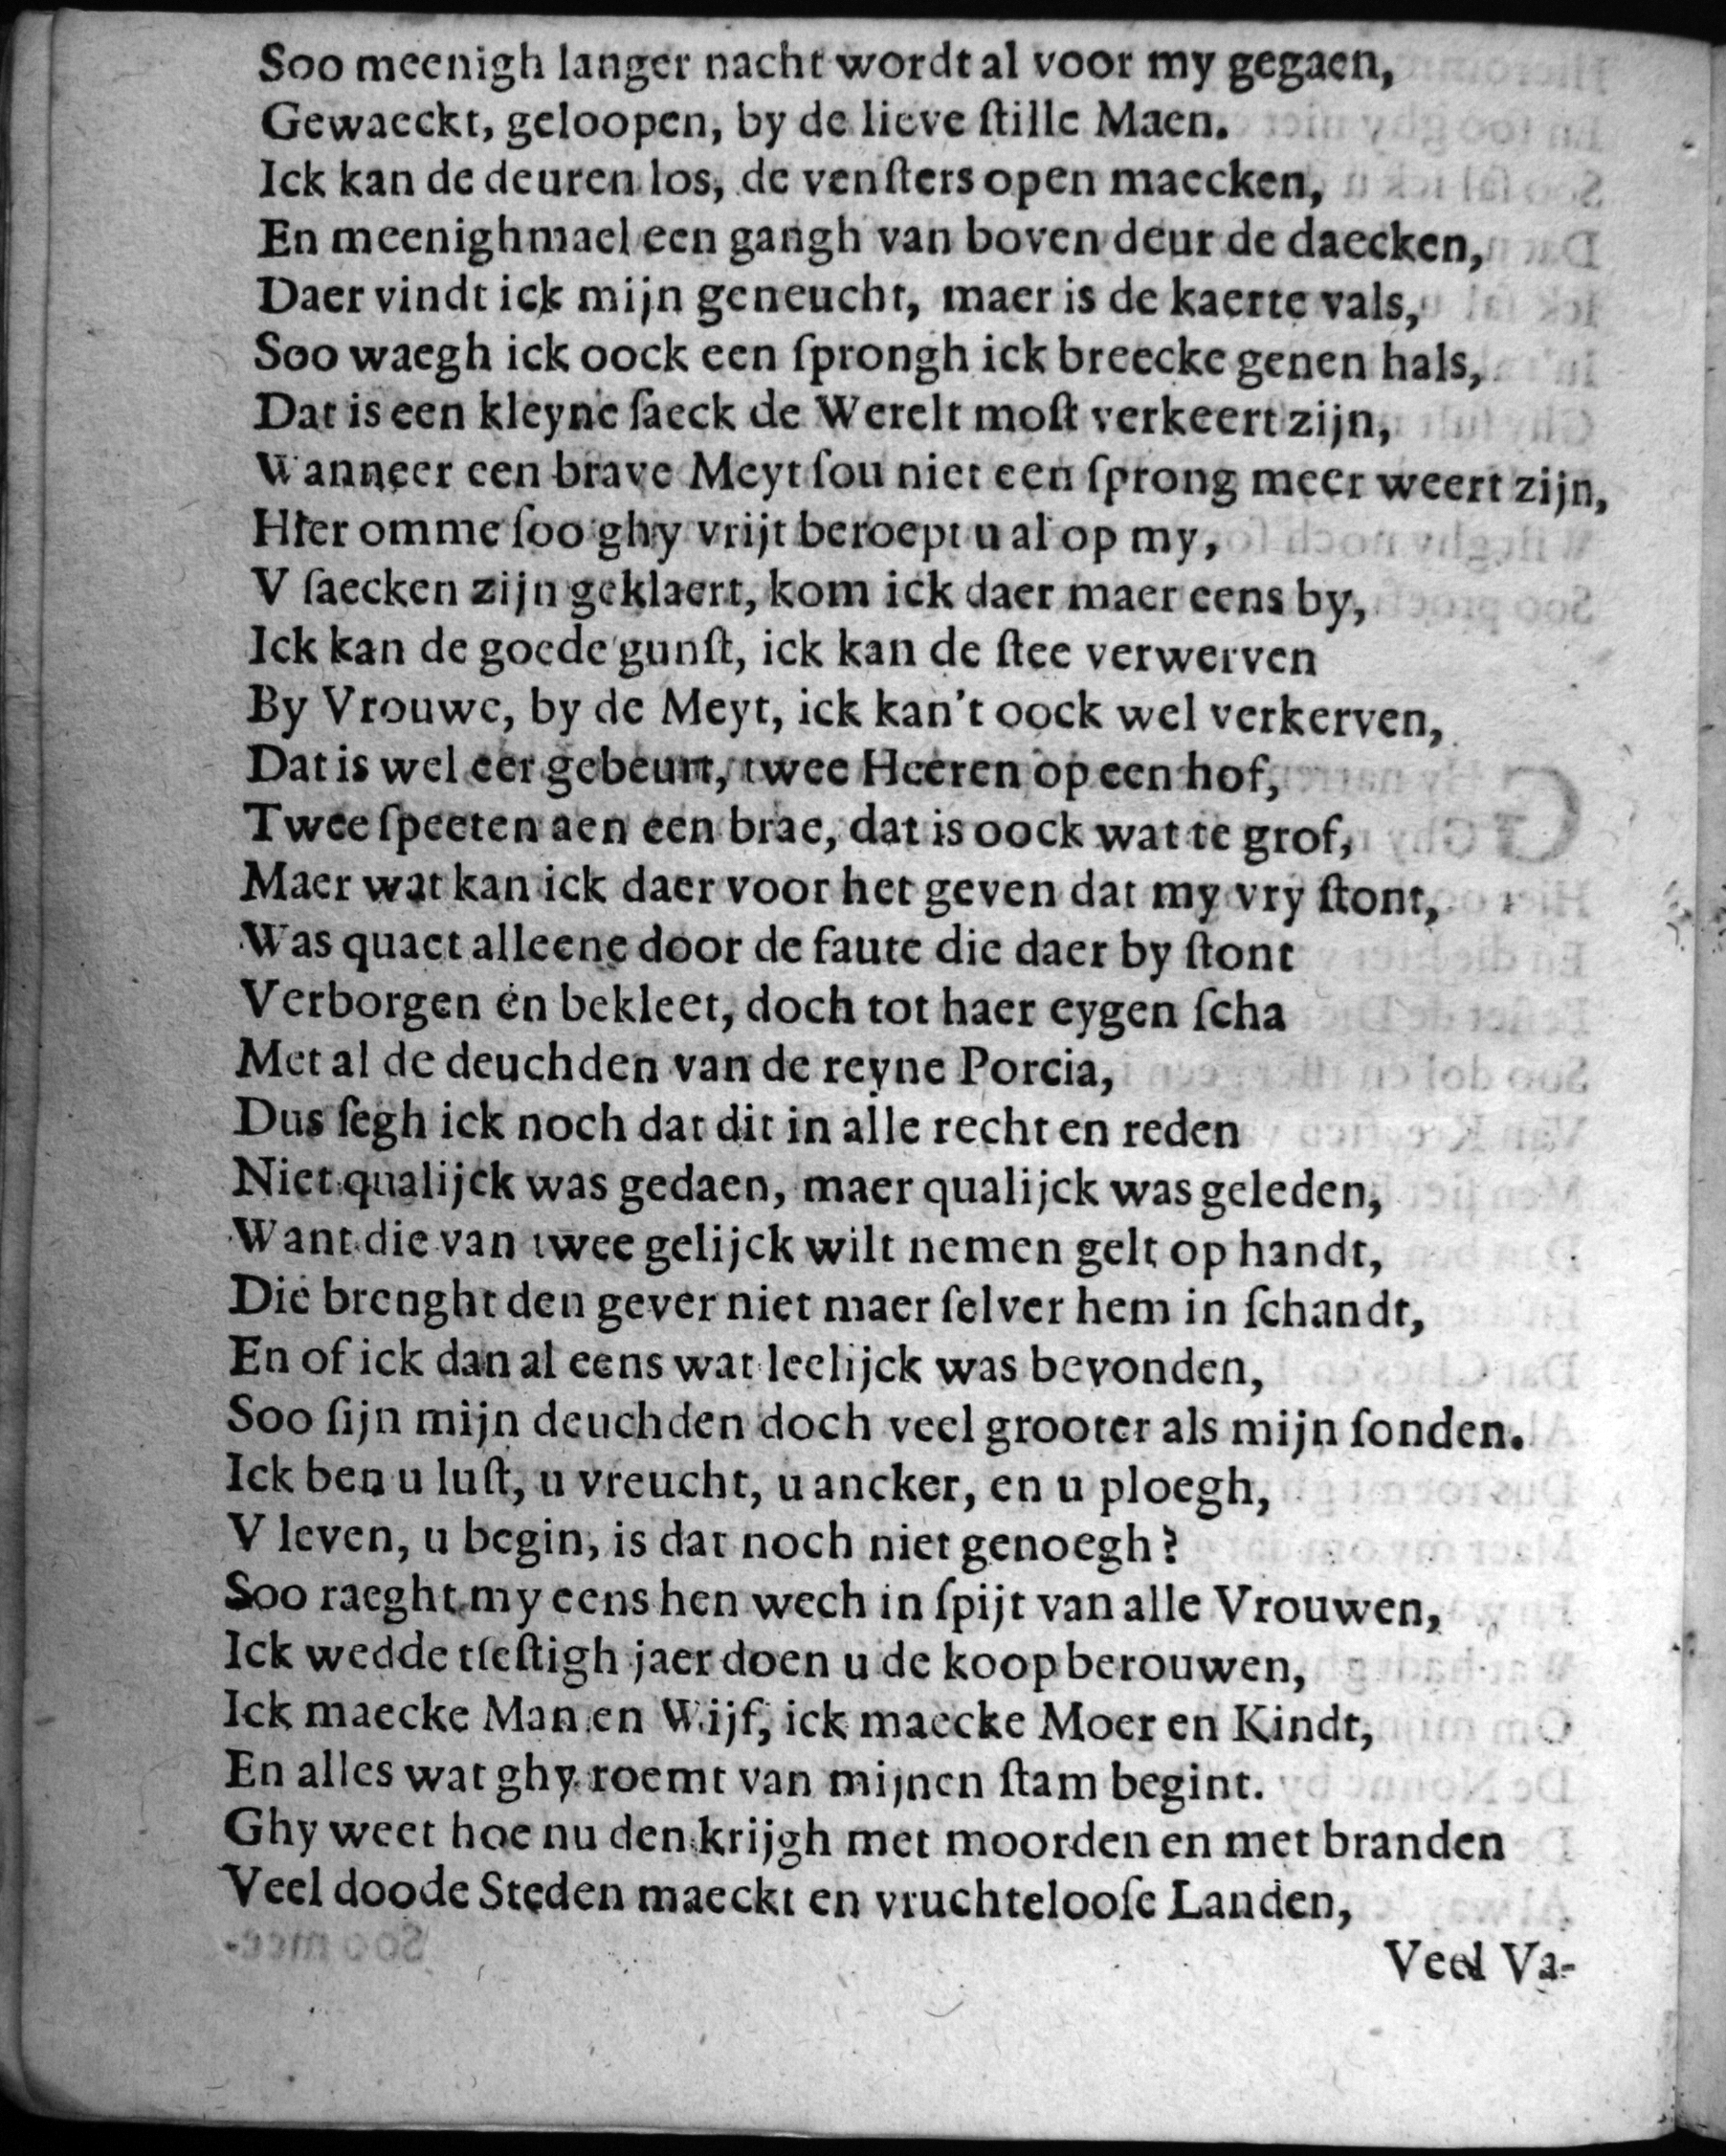 Soo meenigh langer nacht wordt al voor my gegaen,
Gewaeckt, geloopen, by de lieve ſtille Maen.
Ick kan de deuren los, de venſters open maecken,
En meenighmael een gangh van boven deur de daecken,
Daer vindt ick mijn geneucht, maer is de kaerte vals,
Soo waegh ick oock een ſprongh ick breecke genen hals,
Dat is een kleyne ſaeck de Werelt moſt verkeert zijn,
Wanneer een brave Meyt ſou niet een ſprong meer weert zijn,
Hier omme ſoo ghy vrijt beroept u al op my,
V ſaecken zijn geklaert, kom ick daer maer eens by,
Ick kan de goede gunſt, ick kan de ſtee verwerven
By Vrouwe, by de Meyt, ick kan't oock wel verkerven,
Dat is wel eer gebeurt, twee Heeren op een hof,
Twee ſpeeten aen een brae, dat is oock wat te grof,
Maer wat kan ick daer voor het geven dat my vry ſtont,
Was quaet alleene door de faute die daer by ſtont
Verborgen en bekleet, doch tot haer eygen ſcha
Met al de deuchden van de reyne Porcia,
Dus ſegh ick noch dat dit in alle recht en reden
Niet qualijck was gedaen, maer qualijck was geleden,
Want die van twee gelijck wilt nemen gelt op handt,
Die brenght den gever niet maer ſelver hem in ſchandt,
En of ick dan al eens wat leelijck was bevonden,
Soo ſijn mijn deuchden doch veel grooter als mijn ſonden.
Ick ben u luſt, u vreucht, u ancker, en u ploegh,
V leven, u begin, is dat noch niet genoegh?
Soo raeght my eens hen wech in ſpijt van alle Vrouwen,
Ick wedde tſeſtigh jaer doen u de koop berouwen,
Ick maecke Man en Wijf, ick maecke Moer en Kindt,
En alles wat ghy roemt van mijnen ſtam begint.
Ghy weet hoe nu den krijgh met moorden en met branden
Veel doode Steden maeckt en vruchtelooſe Landen,
Veel Va-